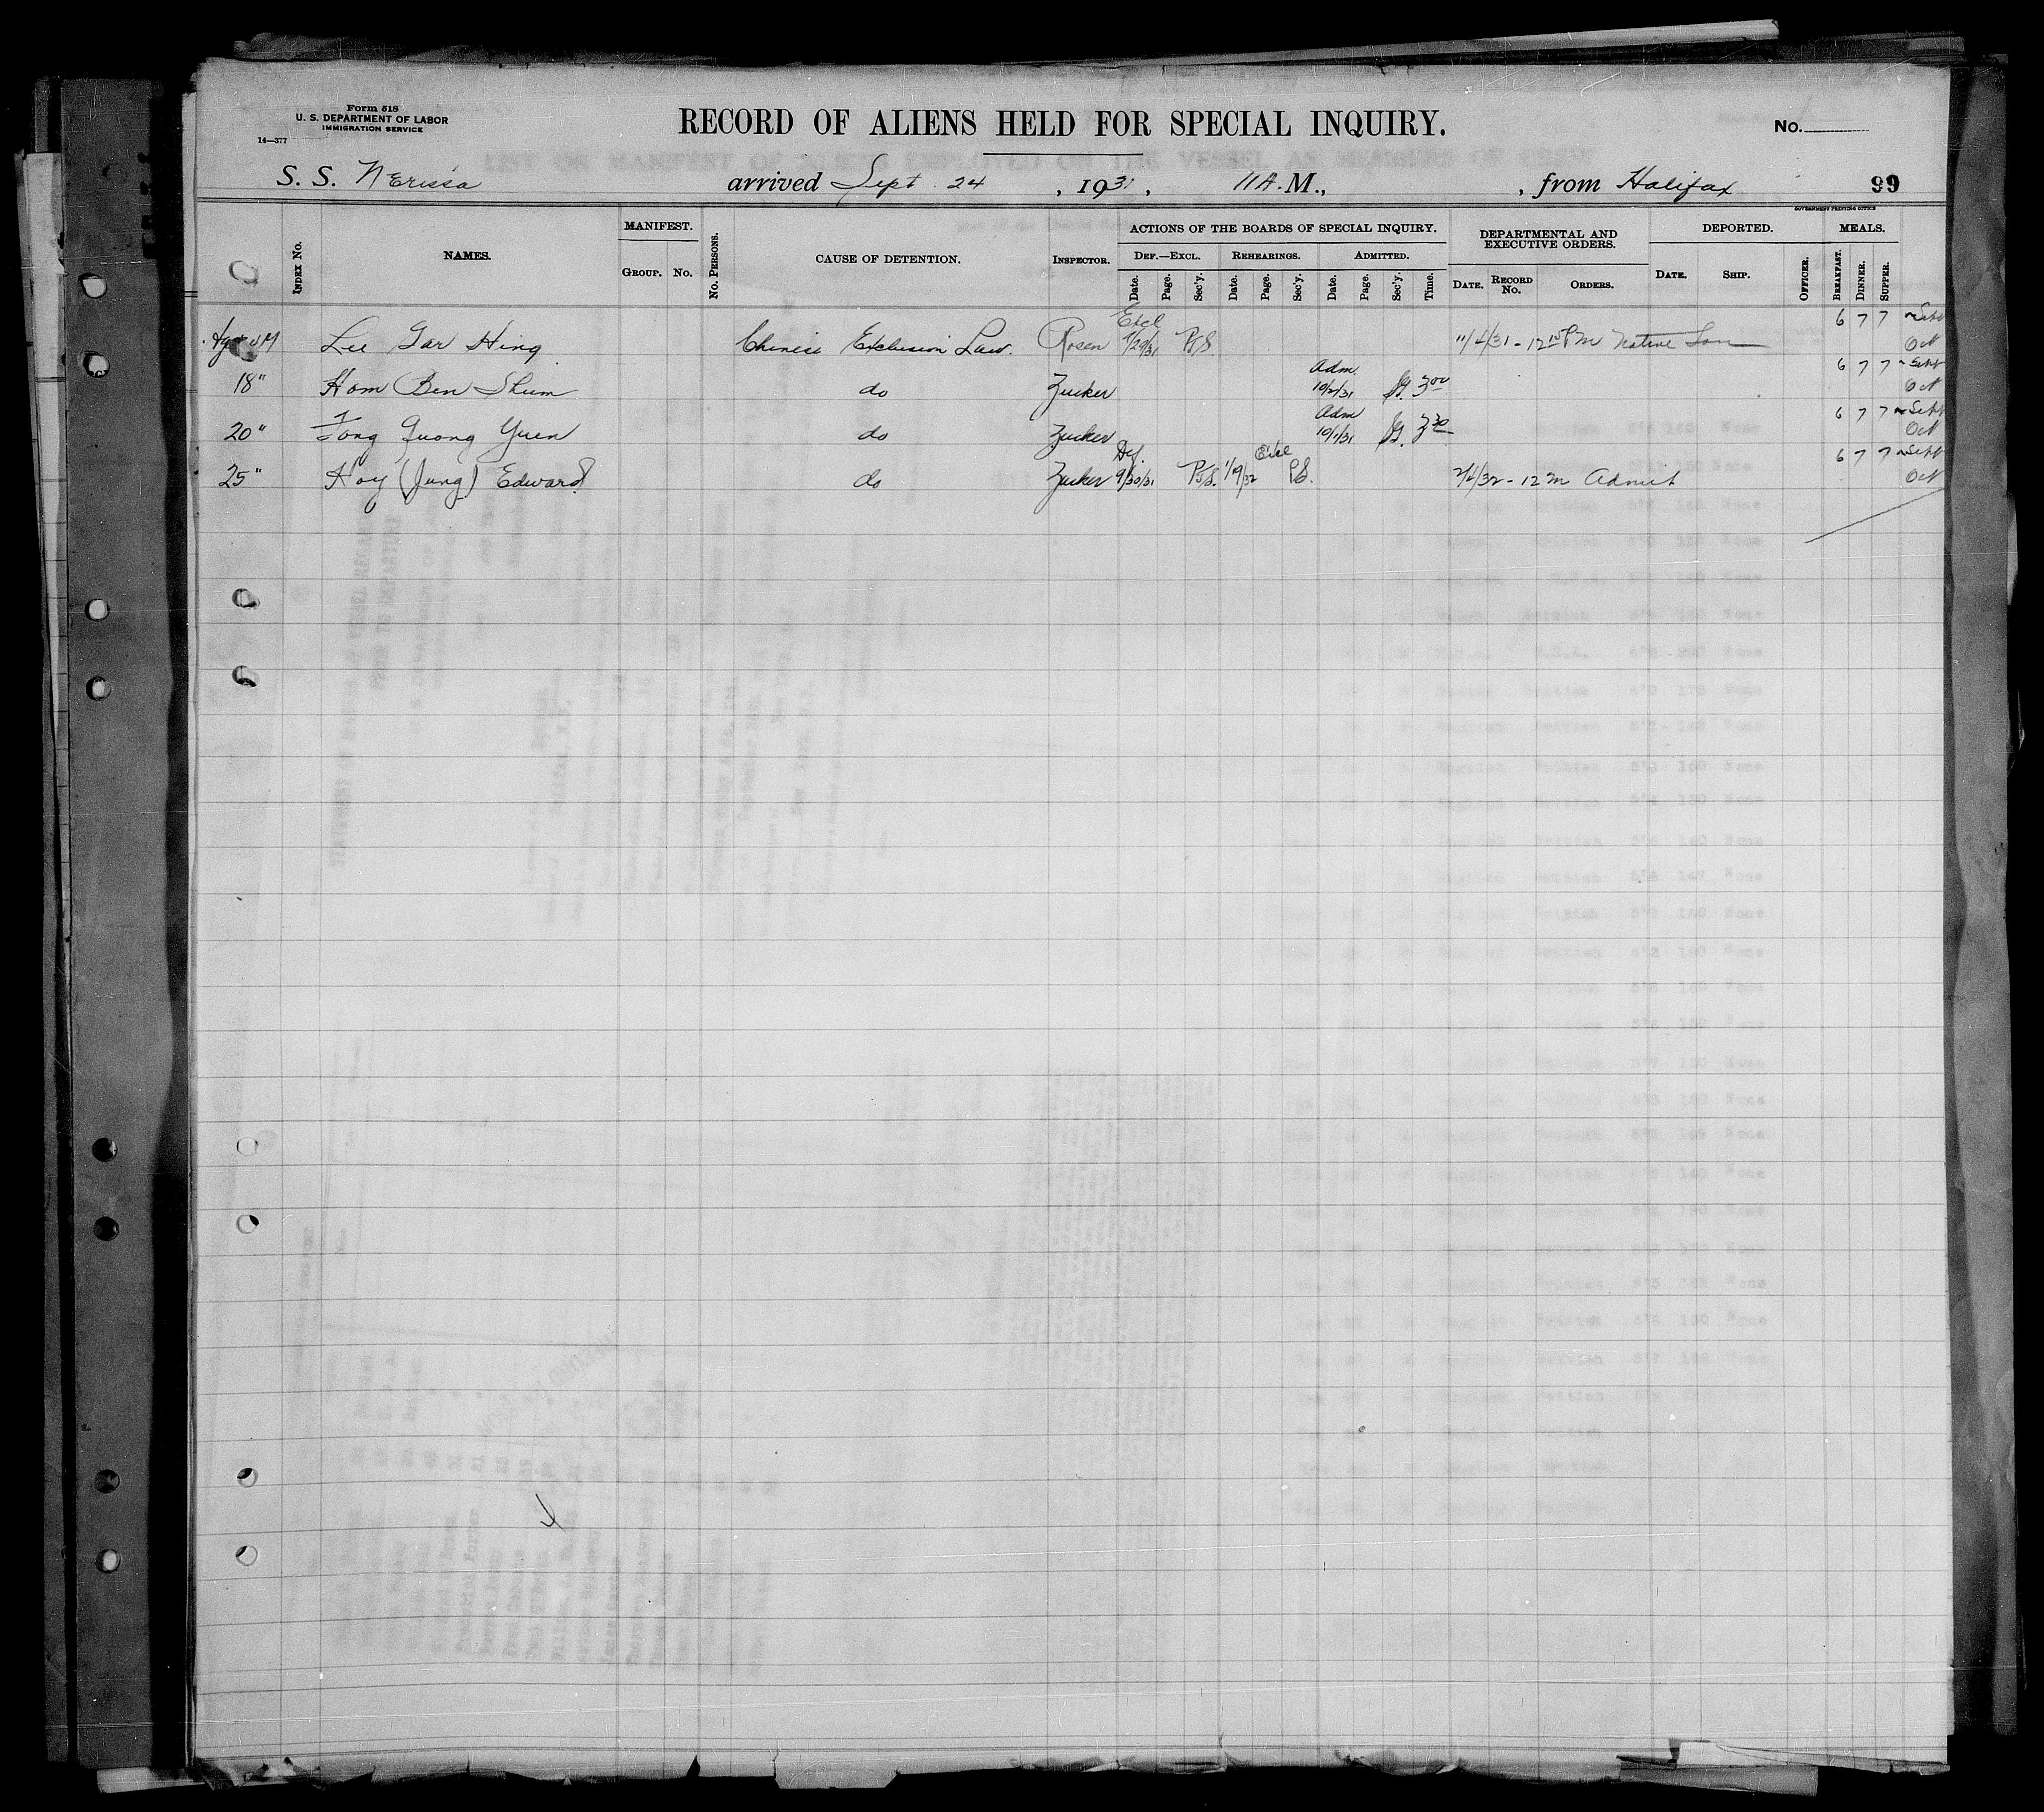 Form 518
U. S. DEPARTMENT OF LABOR
IMMIGRATION SERVICE
14—377
RECORD OF ALIENS HELD FOR SPECIAL INQUIRY.
No.
S. S. Nerissa arrived Sept. 24, 1931, 11 A. M., , from Halifax 99
GOVERNMENT PRINTING OFFICE
INDEX No. NAMES. MANIFEST. GROUP. No. No. PERSONS. CAUSE OF DETENTION. INSPECTOR. ACTIONS OF THE BOARDS OF SPECIAL INQUIRY. DEF.—EXCL. Date. Page. Sec'y. REHEARINGS. Date. Page. Sec'y. ADMITTED. Date. Page. Sec'y. Time. DEPARTMENTAL AND EXECUTIVE ORDERS. DATE. RECORD No. ORDERS. DEPORTED. DATE. SHIP. OFFICER. MEALS. BREAKFAST. DINNER. SUPPER.
Lee Gar Hing Chinese Exclusion Law. Rosen Excl 9/29/31 11/4/31 - 12 10 PM Native Son 6 7 7 Sept Oct
18" Hom Ben Shum do Zucker Adm. 10/2/31 3 00 6 7 7 Sept Oct
20" Fong Quong Yuen do Zucker Adm 10/1/31 3 30 6 7 7 Sept Oct
25" Hoy (Jung) Edward do Zucker Def. 9/30/31 1/9/32 Excl 2/4/32 - 12 M Admit 6 7 7 Sept Oct